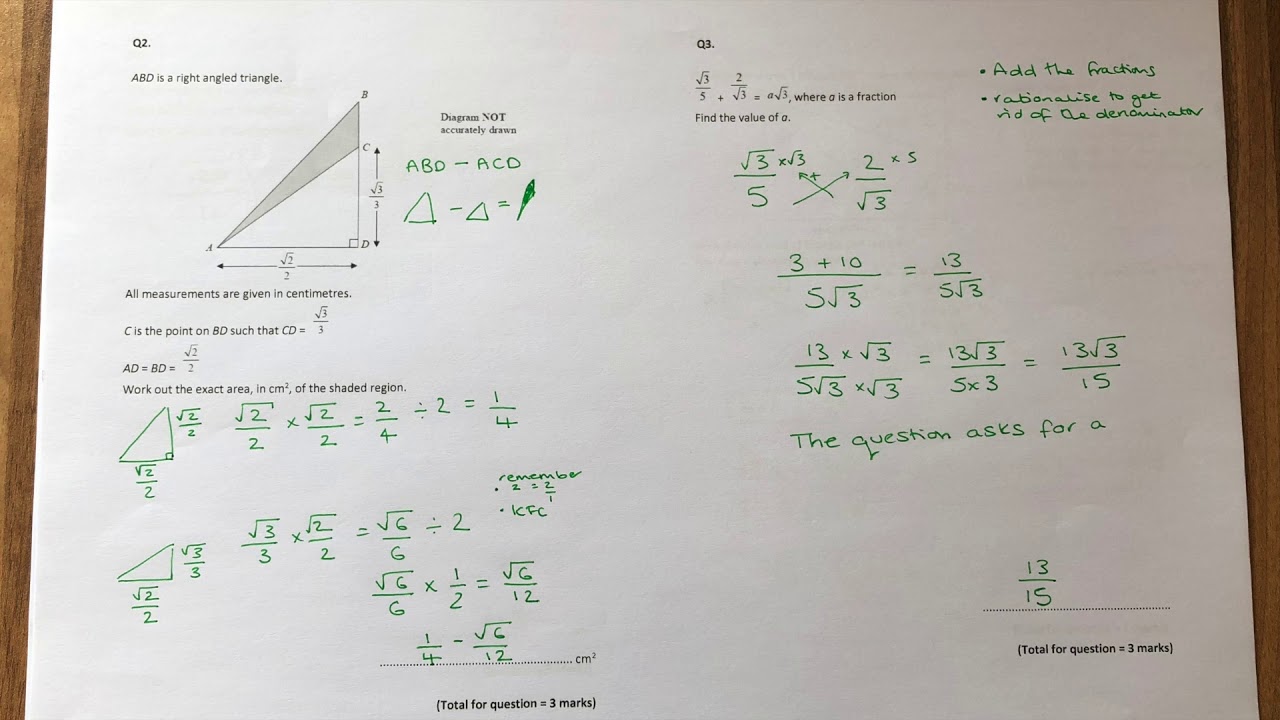 Q2.
ABD is a right angled triangle.
B
Diagram NOT
accurately drawn
C
√3/3
A
D
√2/2
ABD - ACD
- =
All measurements are given in centimetres.
C is the point on BD such that CD = √3/3
AD = BD = √2/2
Work out the exact area, in cm², of the shaded region.
√2/2
√2/2
√2/2 × √2/2 = 2/4 ÷ 2 = 1/4
remember
• 2 = 2/1
• KFC
√3/3
√2/2
√3/3 × √2/2 = √6/6 ÷ 2
√6/6 × 1/2 = √6/12
1/4 - √6/12
cm²
(Total for question = 3 marks)
Q3.
√3/5 + 2/√3 = a√3, where a is a fraction
Find the value of a.
• Add the fractions
• rationalise to get
rid of the denominator
√3 ×√3 / 5 + 2 × 5 / √3
3 + 10 / 5√3 = 13 / 5√3
13 × √3 / 5√3 × √3 = 13√3 / 5×3 = 13√3 / 15
The question asks for a
13/15
(Total for question = 3 marks)